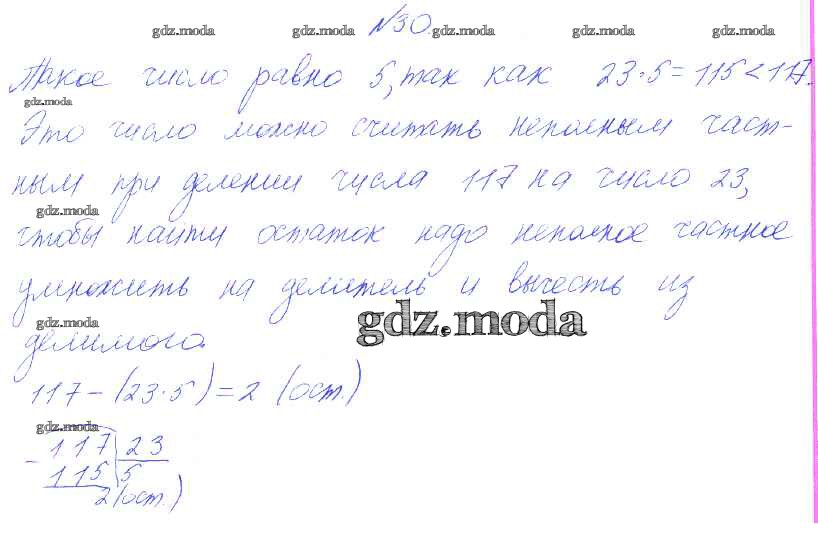 №30.
gdz.moda gdz.moda gdz.moda gdz.moda
Такое число равно 5, так как 23·5=115<117.
gdz.moda
Это число можно считать неполным част-
ным при делении числа 117 на число 23,
gdz.moda
чтобы найти остаток надо неполное частное
умножить на делитель и вычесть из
gdz.moda
gdz.moda
делимого.
117-(23·5)=2 (ост.)
gdz.moda
-117 23
115 5
2(ост.)